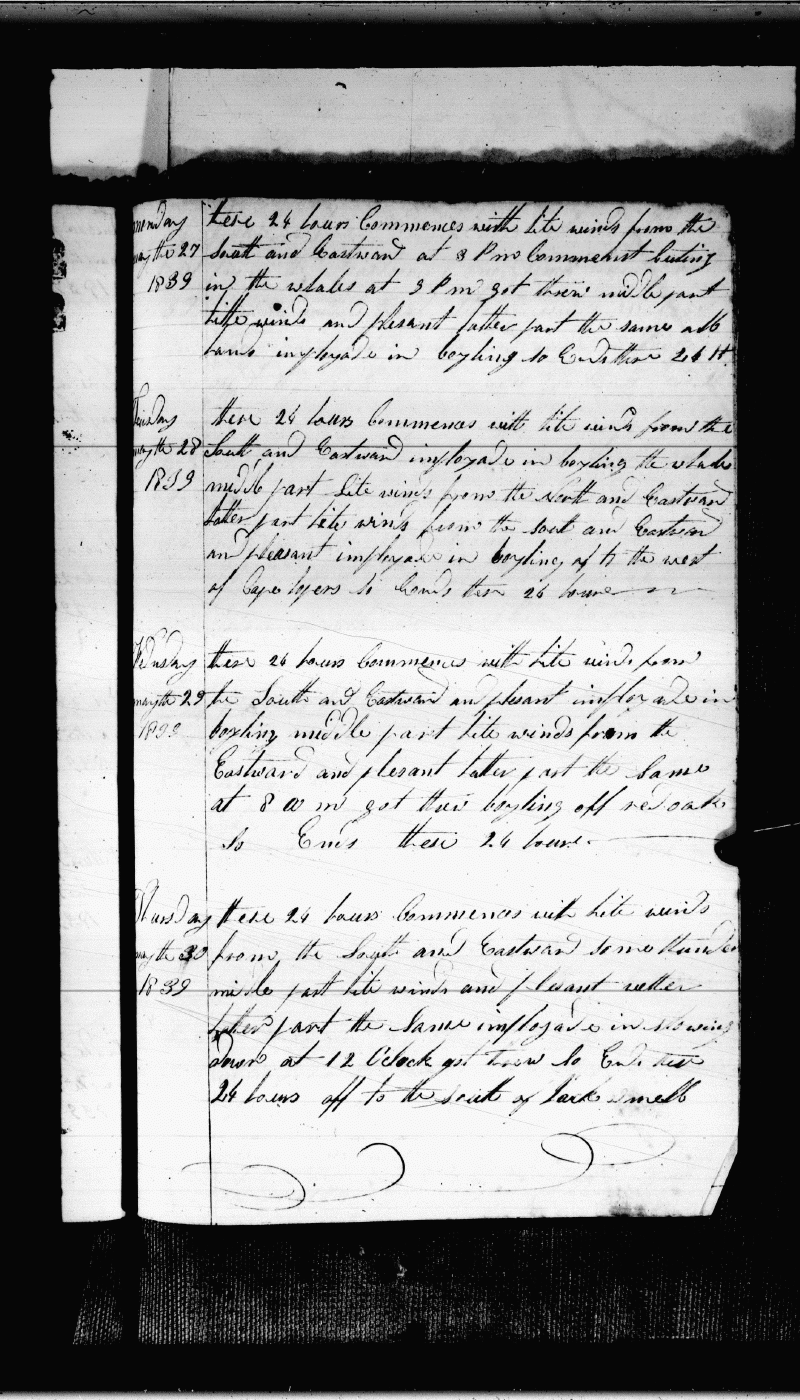 monday
may the 27
1839
these 24 hours Commences with lite winds from the
South and Eastward at 3 P m Commenst Cuting
in the whales at 9 P m got threw middle part
litte winds and plesant latter part the same all
hands imployade in boyling so Ends these 24 H
Tuisday
may the 28
1839
these 24 hours Commences with lite winds from the
South and Eastward imployade in boyling the whales
middle part lite winds from the South and Eastward
latter part lite winds from the South and Eastward
and pleasant imployade in boyling of to the west
of Cape so Ends these 24 hours
Wedusday
may the 29
1839
these 24 hours Commences with lite winds from
the South and Eastward and plesant imployade in
boyling middle part lite winds from the
Eastward and plesant latter part the Same
at 8 a m got threw boyling off
So Ends these 24 hours
Thursday
may the 30
1839
these 24 hours Commences with lite winds
from the South and Eastward some thunder
middle part lite winds and plesant wether
latter part the Same imployade in stowing
down at 12 Oclock got threw So Ends these
24 hours off to the South of